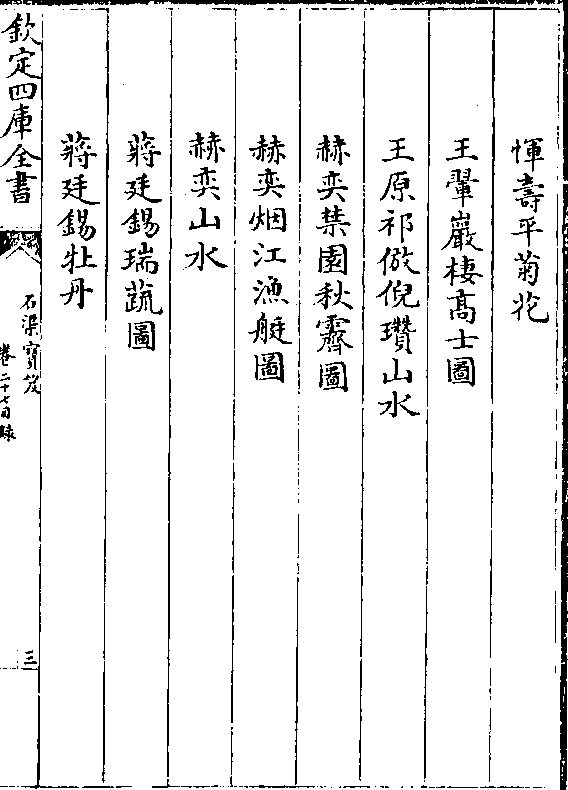 惲壽平菊花
王翬巖棲髙士圖
王原祁倣倪瓚山水
赫奕禁園秋霽圖
赫奕烟江漁艇圖
赫奕山水
蔣廷錫瑞蔬圖
蔣廷錫牡丹
欽定四庫全書
石渠寶笈
卷二十七目録
三